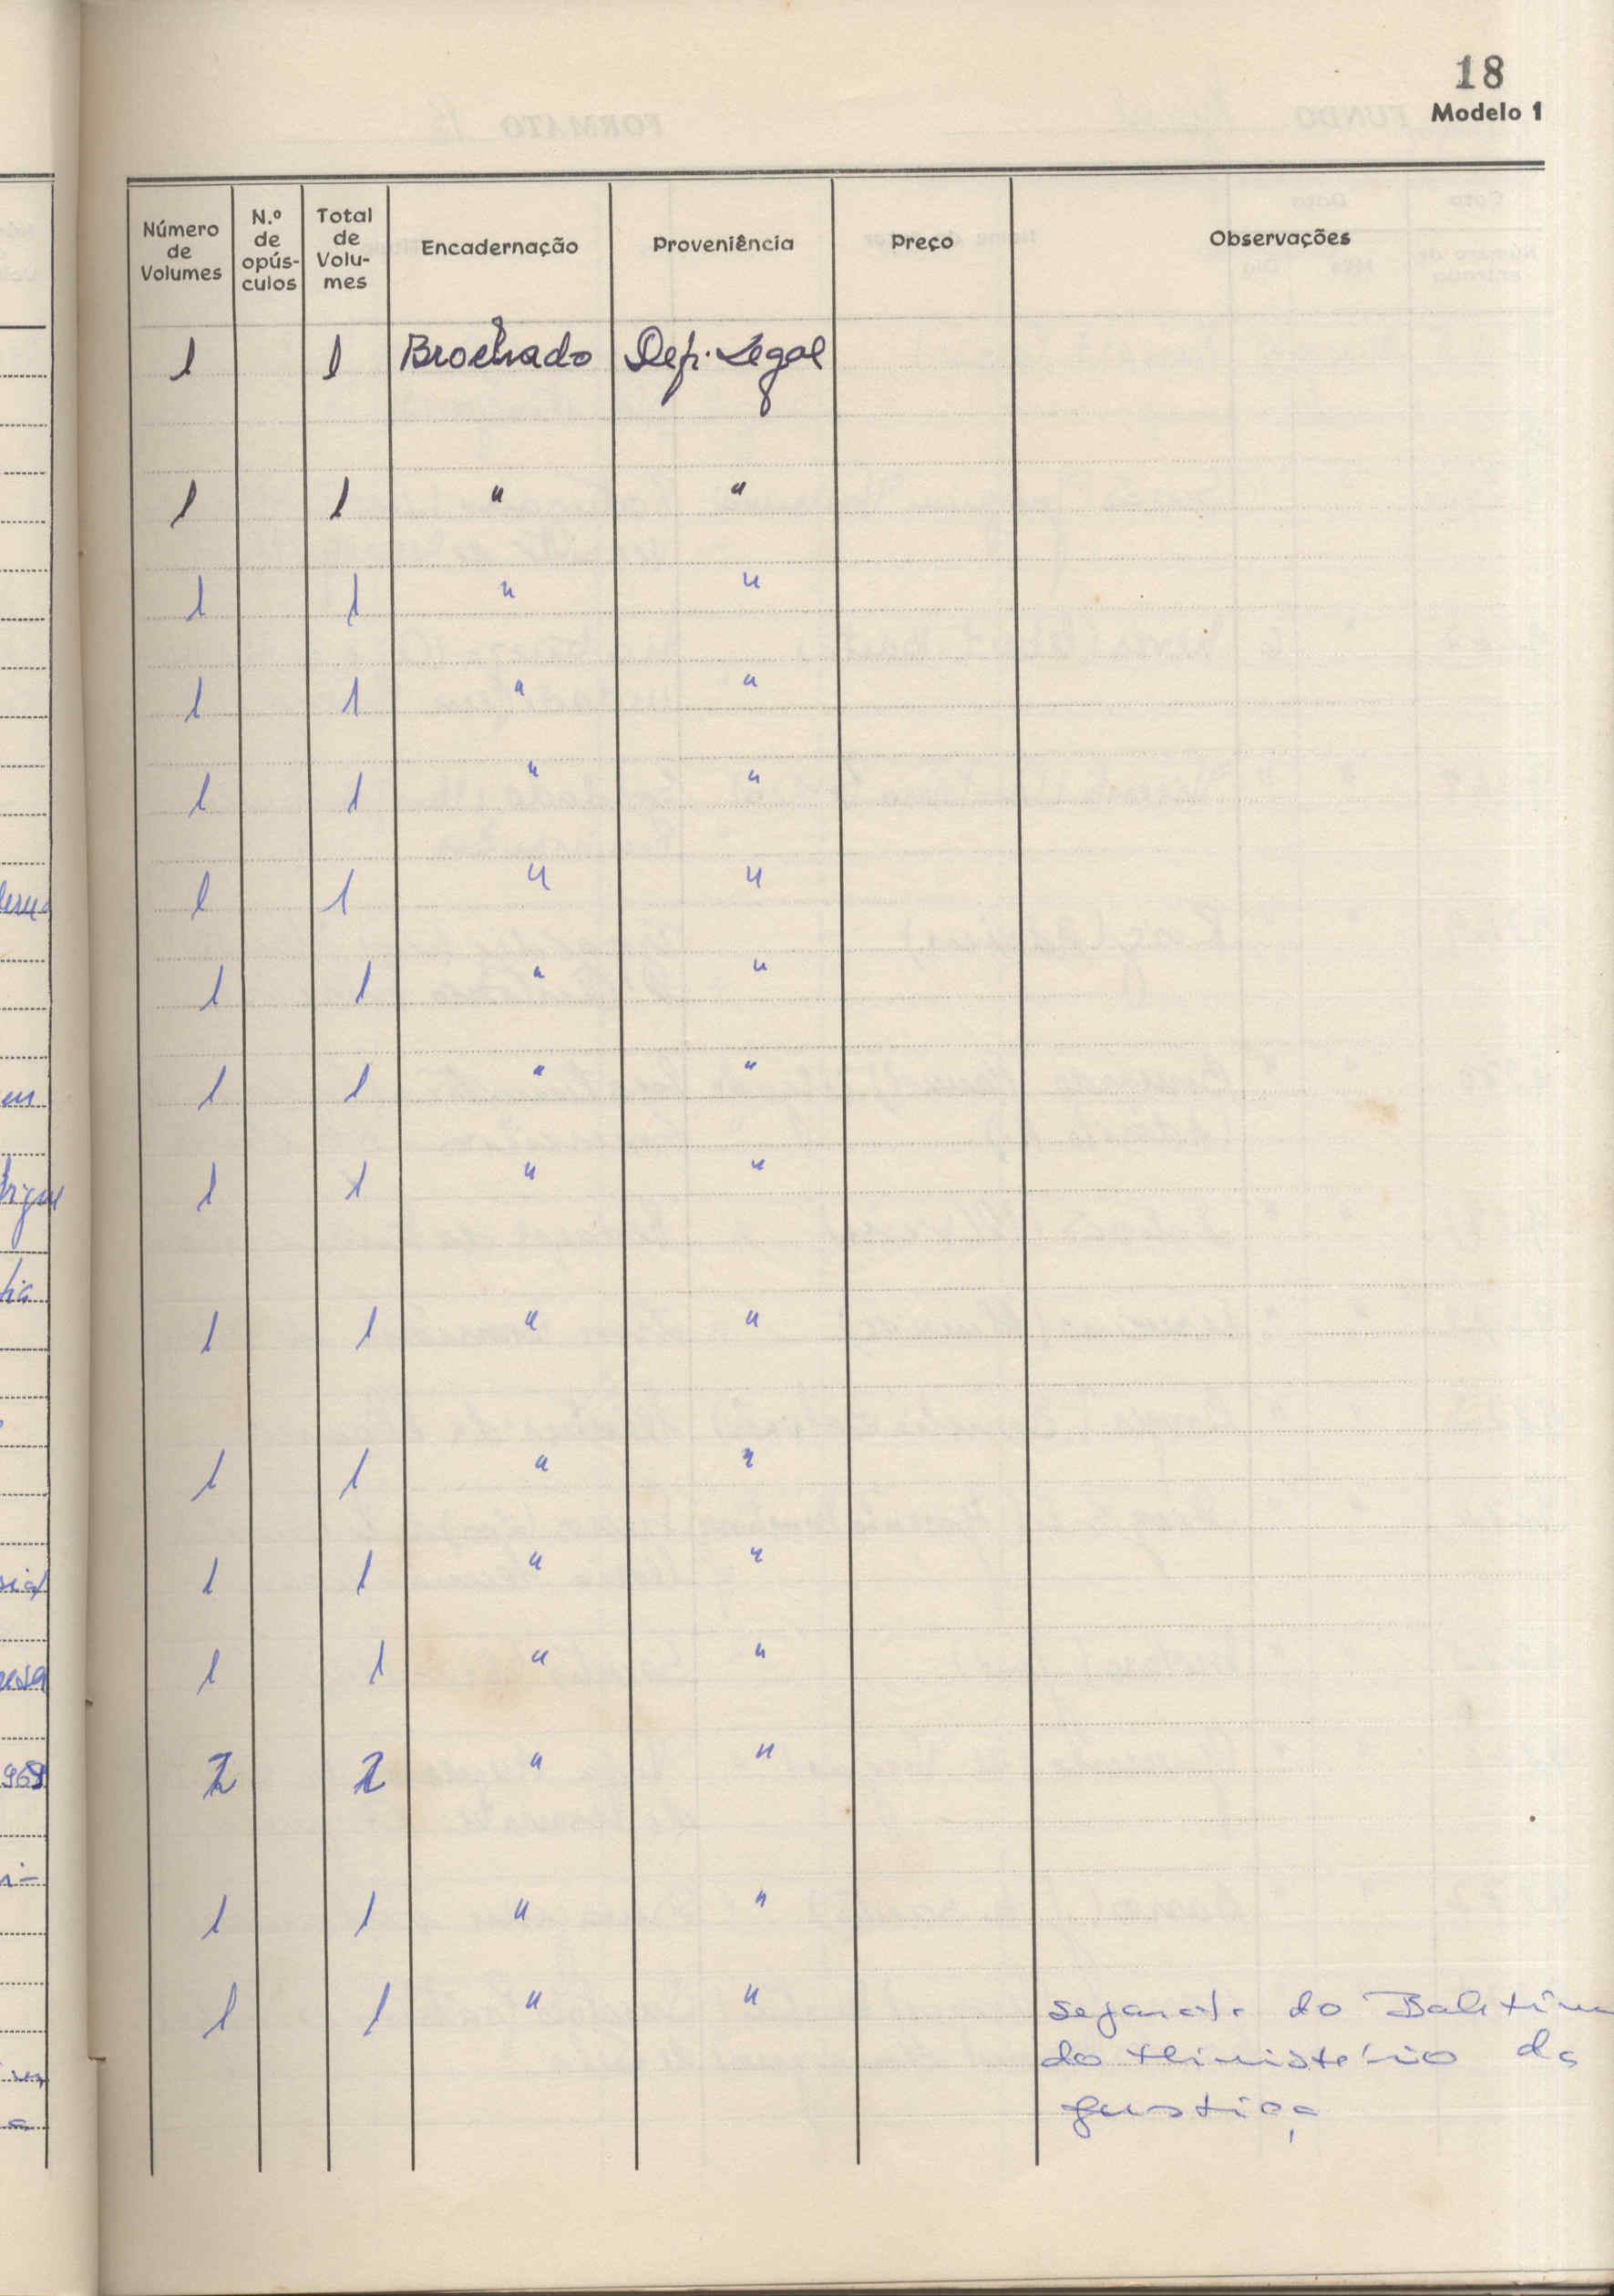 18
Modelo 1
Número de Volumes N.º de opús-culos Total de Volu-mes Encadernação Proveniência Preço Observações
1 1 Brochado Dep. Legal
1 1 " "
1 1 " "
1 1 " "
1 1 " "
1 1 " "
1 1 " "
1 1 " "
1 1 " "
1 1 " "
1 1 " "
1 1 " "
1 1 " "
2 2 " "
1 1 " "
1 1 " " separata do Boletim
do Ministério da
Justiça